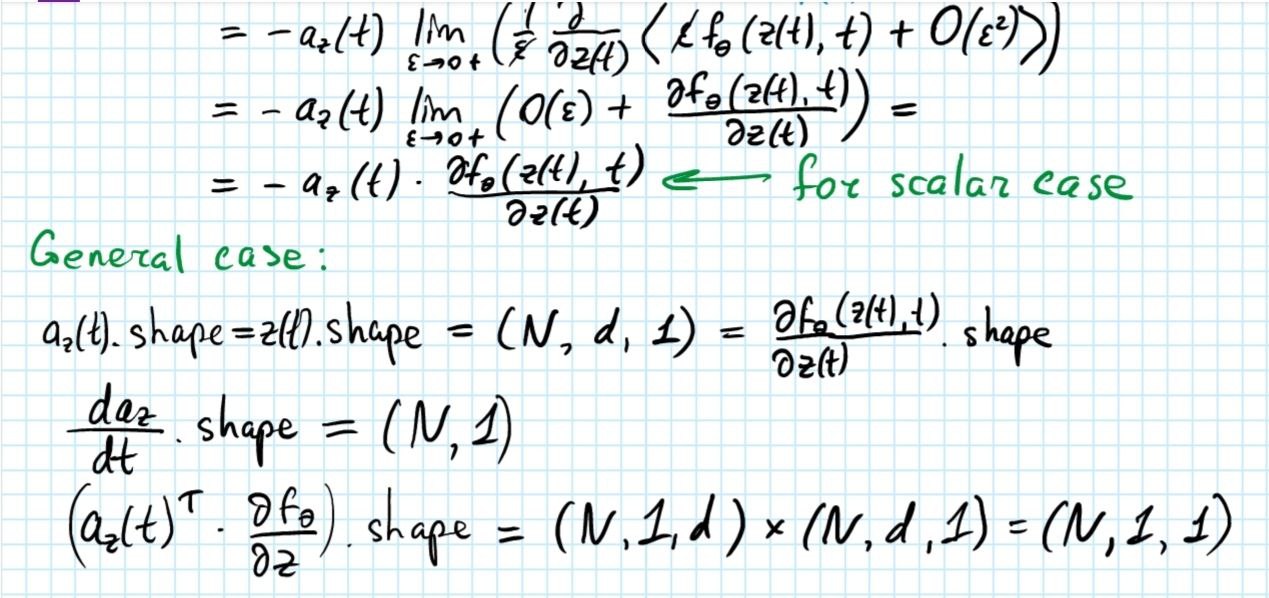 = -a_z(t) lim_{ε→0+} (1/ε ∂/∂z(t) (ε f_θ(z(t), t) + O(ε²)))
= -a_z(t) lim_{ε→0+} (O(ε) + ∂f_θ(z(t), t)/∂z(t)) =
= -a_z(t) · ∂f_θ(z(t), t)/∂z(t) ← for scalar case
General case:
a_z(t).shape = z(t).shape = (N, d, 1) = ∂f_θ(z(t), t)/∂z(t) . shape
da_z/dt . shape = (N, 1)
(a_z(t)^T · ∂f_θ/∂z) . shape = (N, 1, d) × (N, d, 1) = (N, 1, 1)